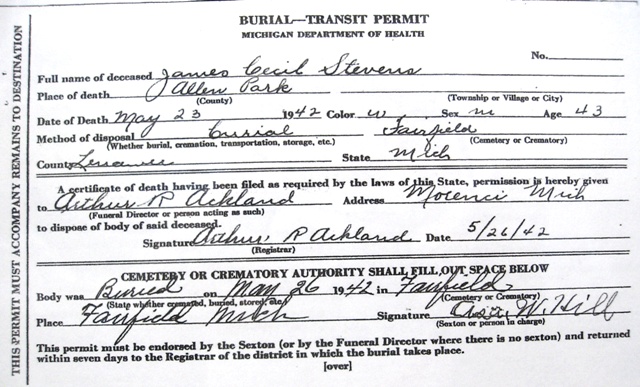 THIS PERMIT MUST ACCOMPANY REMAINS TO DESTINATION
BURIAL—TRANSIT PERMIT
MICHIGAN DEPARTMENT OF HEALTH
No.
Full name of deceased James Cecil Stevens
Place of death Allen Park
(County) (Township or Village or City)
Date of Death May 23 1942 Color w. Sex m Age 43
Method of disposal burial Fairfield
(Whether burial, cremation, transportation, storage, etc.) (Cemetery or Crematory)
County Lenawee State Mich
A certificate of death having been filed as required by the laws of this State, permission is hereby given
to Arthur R Ackland Address Morenci Mich
(Funeral Director or person acting as such)
to dispose of body of said deceased.
Signature Arthur R Ackland Date 5/26/42
(Registrar)
CEMETERY OR CREMATORY AUTHORITY SHALL FILL OUT SPACE BELOW
Body was Buried on May 26 1942 in Fairfield
(State whether cremated, buried, stored, etc.) (Cemetery or Crematory)
Place Fairfield Mich Signature W. Hill
(Sexton or person in charge)
This permit must be endorsed by the Sexton (or by the Funeral Director where there is no sexton) and returned
within seven days to the Registrar of the district in which the burial takes place.
[over]